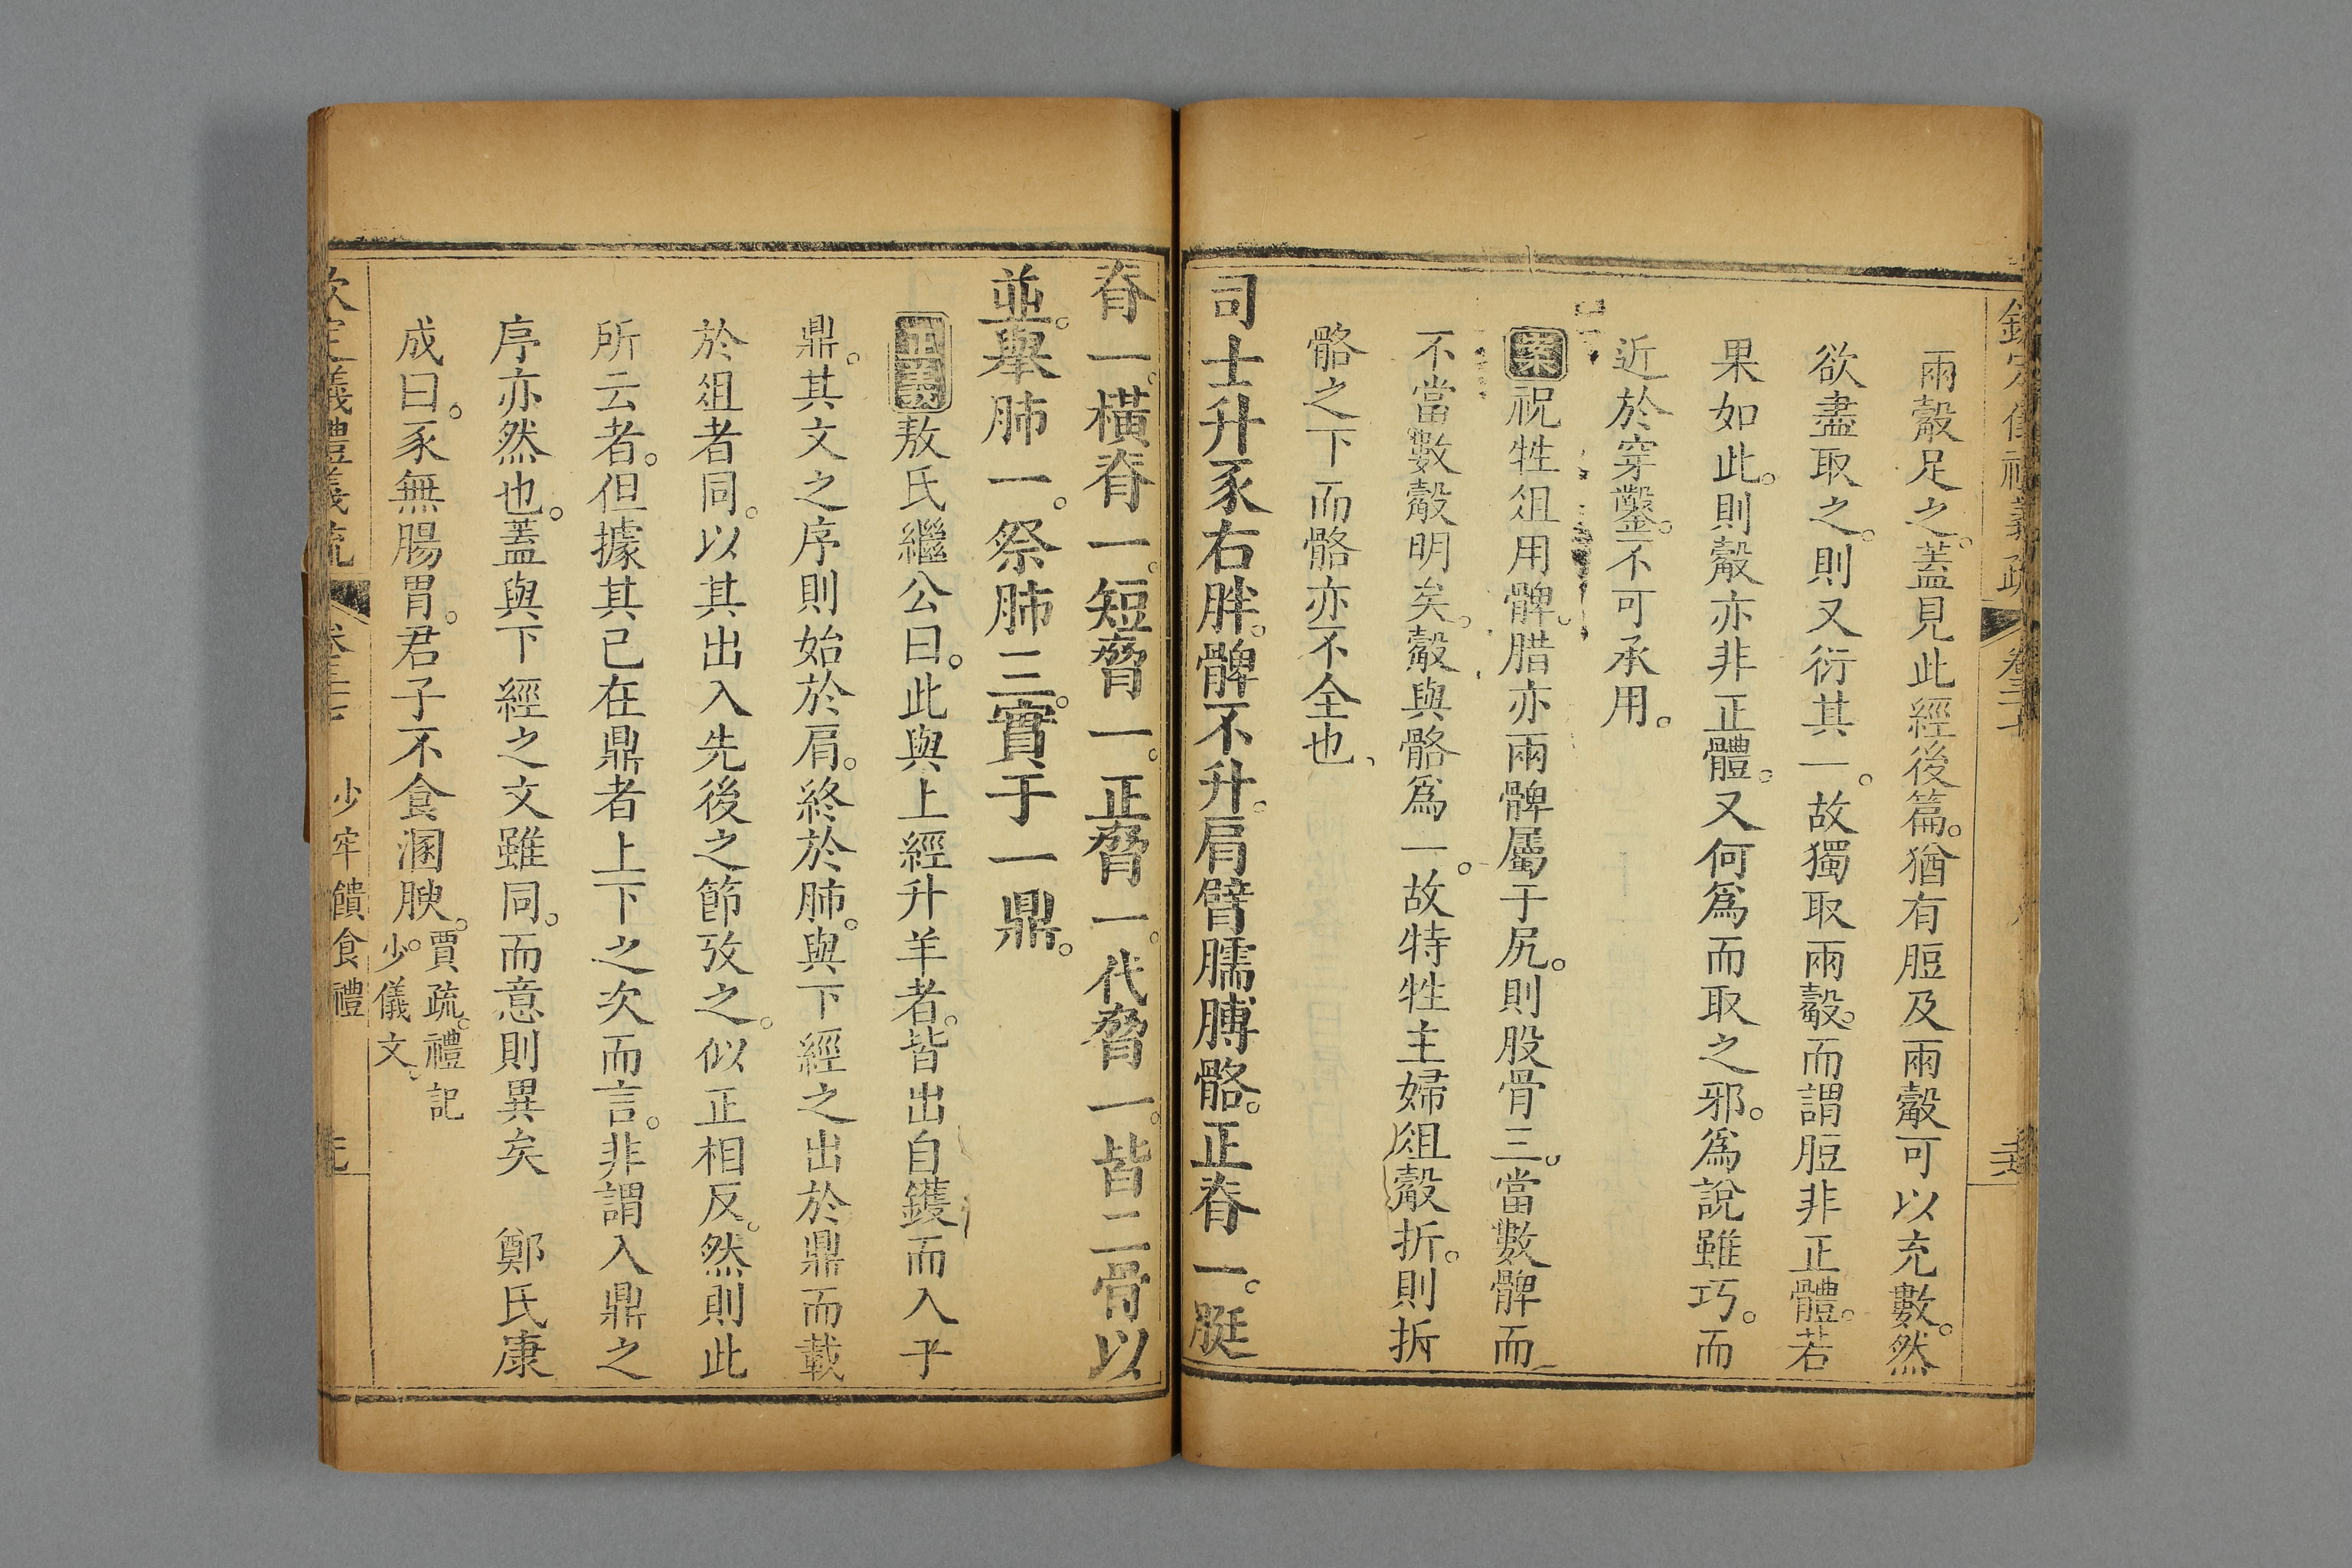 兩觳足之。蓋見此經後篇。猶有脰及兩觳可以充數。然
欲盡取之。則又衍其一。故獨取兩觳。而謂脰非正體。若
果如此。則觳亦非正體。又何爲而取之邪。爲說雖巧。而
近於穿鑿。不可承用。
案祝牲俎用髀。腊亦兩髀屬于尻。則股骨三。當數髀而
不當數觳明矣。觳與骼爲一。故特牲主婦俎觳折。則折
骼之下而骼亦不全也、
司士升豕右胖。髀不升。肩臂臑膊骼。正脊一。脡
脊一。橫脊一。短脅一。正脅一。代脅一。皆二骨以
並。舉肺一。祭肺三。實于一鼎。
正義敖氏繼公曰。此與上經升羊者。皆出自鑊而入于
鼎。其文之序則始於肩。終於肺。與下經之出於鼎而載
於俎者同。以其出入先後之節攷之。似正相反。然則此
所云者。但據其已在鼎者上下之次而言。非謂入鼎之
序亦然也。蓋與下經之文雖同。而意則異矣 鄭氏康
成曰。豕無腸胃。君子不食溷腴。賈疏。禮記
少儀文。
欽定儀禮義疏 卷三十七 少牢饋食禮